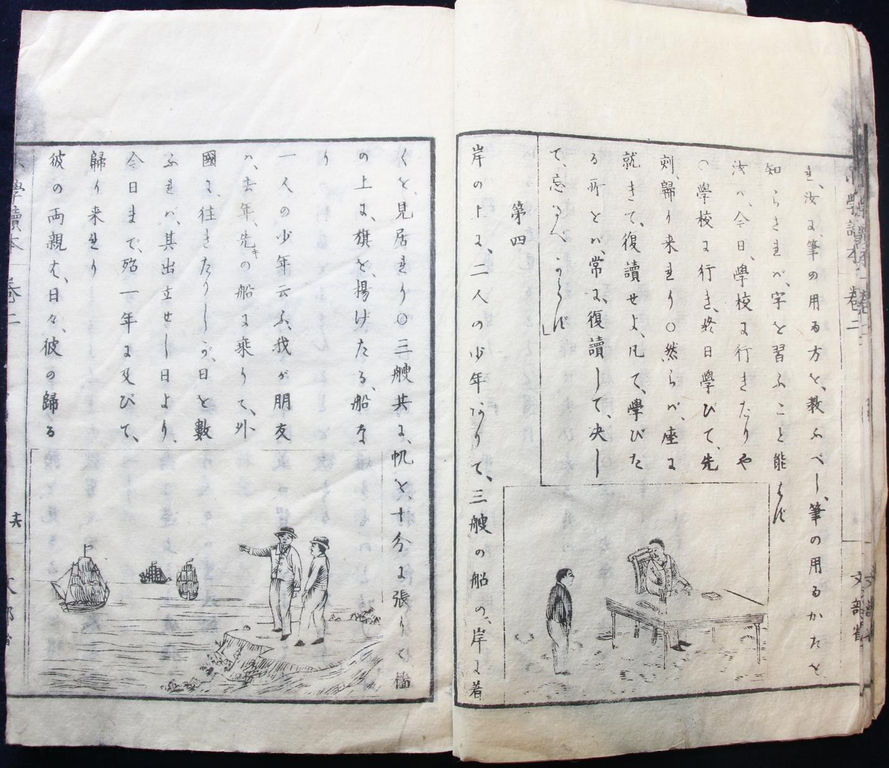 れ、汝に筆の用ゐ方を、教ふべし、筆の用ゐかたを
知らざれバ、字を習ふこと能はず
汝ハ、今日、學校に行きたりや
○學校に行き、終日學びて、先
刻歸り来れり○然らバ、座に
就きて、復讀せよ、凡て、學びた
る所をバ、常に、復讀して、決し
て、忘るべからず」
第四
岸の上に、二人の少年ありて、三艘の船の、岸に着
くを、見居れり○三艘共に、帆を、十分に張りて檣
の上に、旗を、揚げたる、船な
り
一人の少年云ふ、我が朋友
ハ、去年、先きの船に乗りて、外
國に、往きたりしが、日を數
ふれバ、其出立せし日より、
今日まで、殆一年に及びて、
歸り来れり
彼の両親も、日々、彼の歸る
小學讀本 巻二
文部省